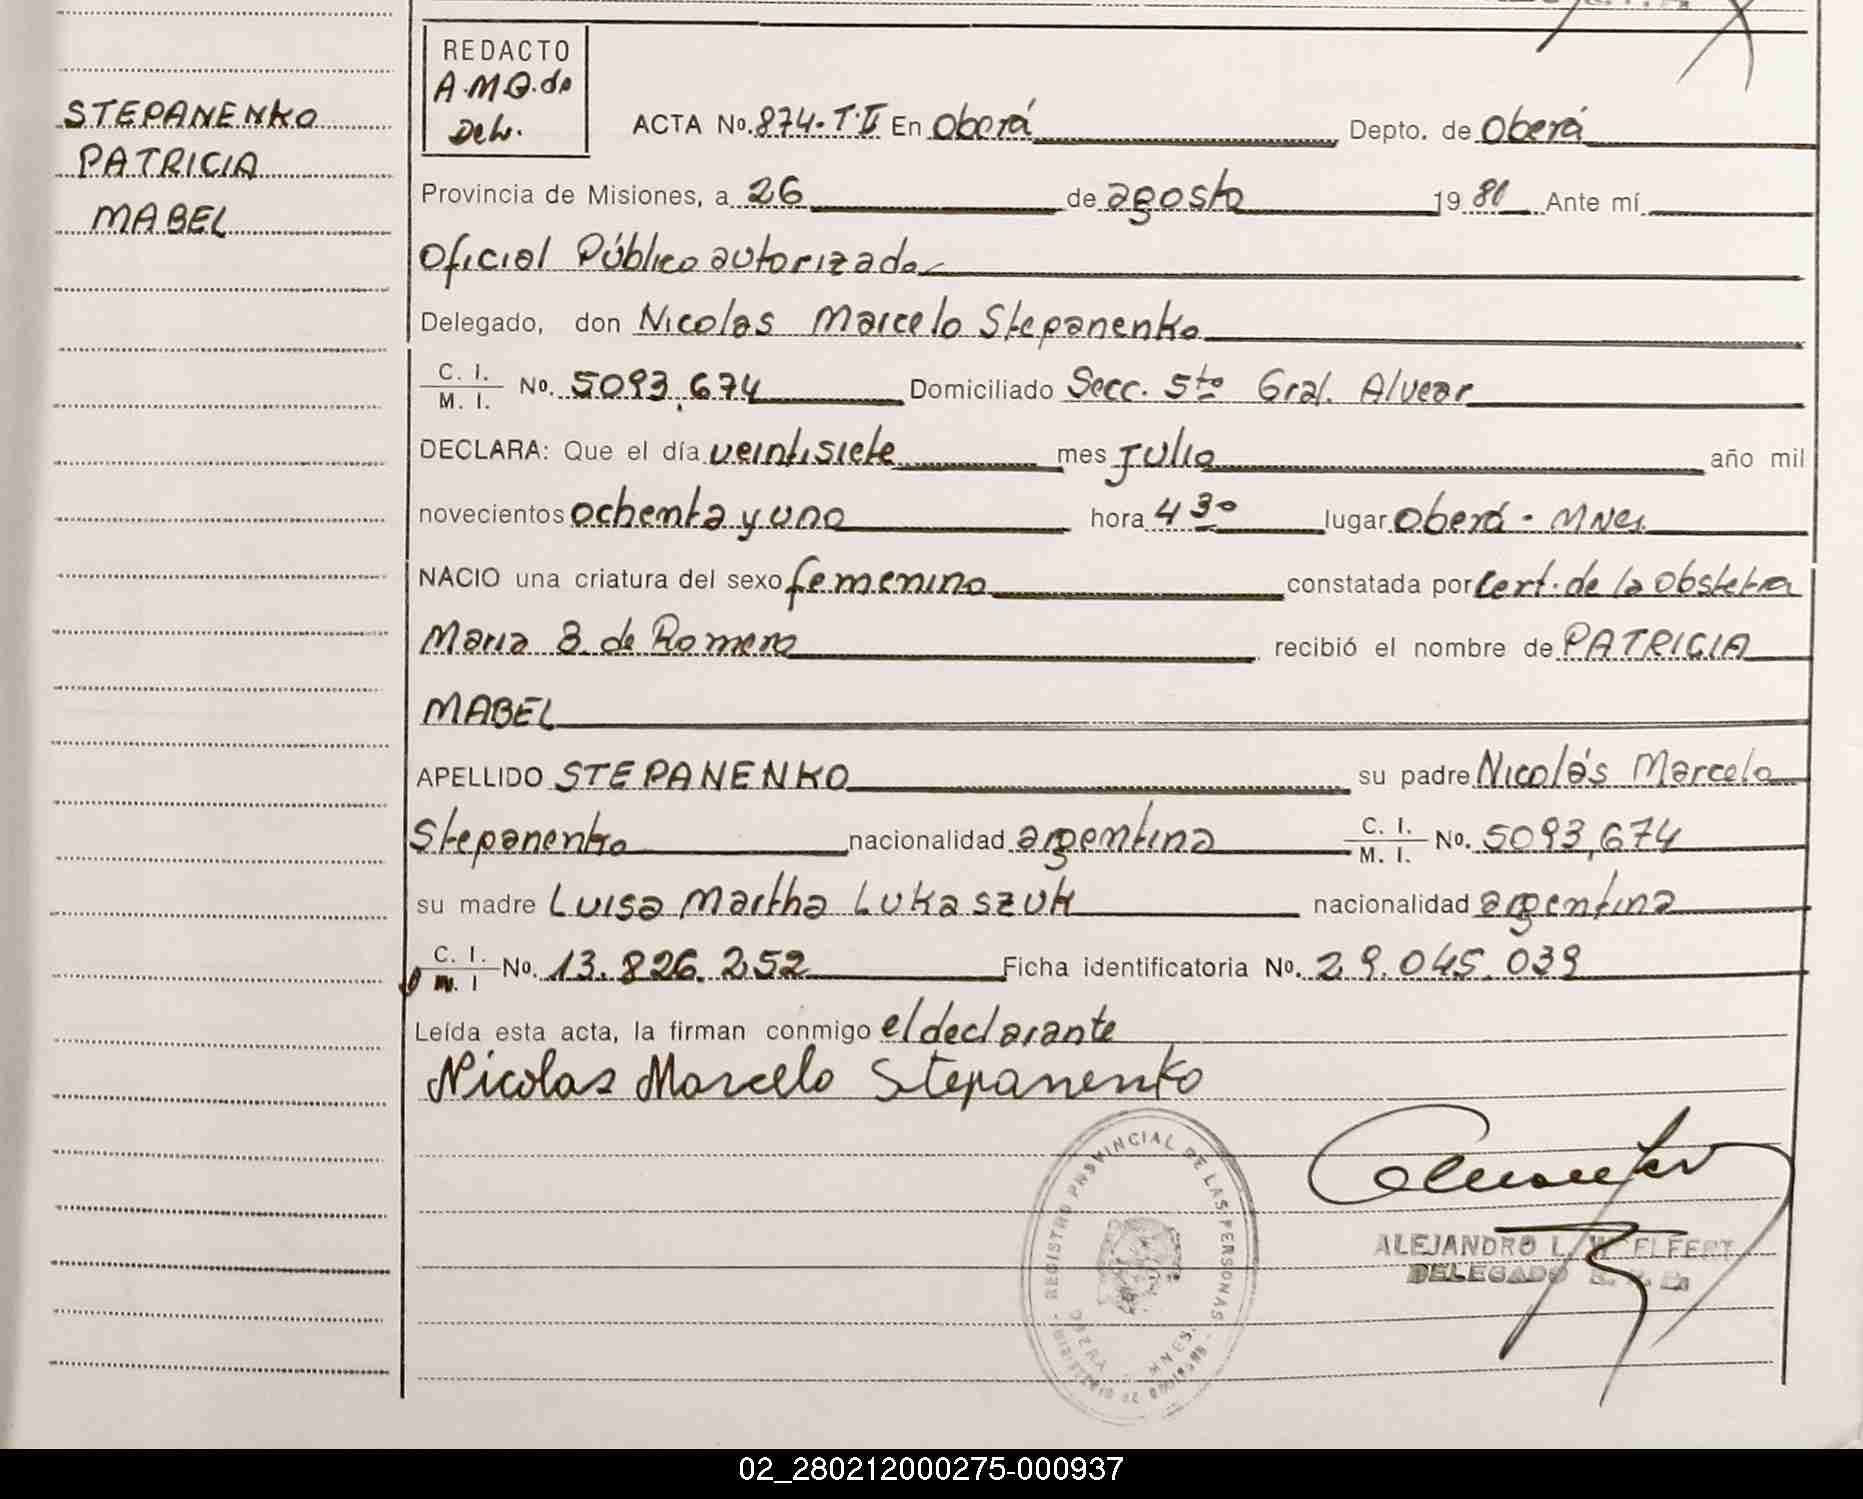 STEPANENKO
PATRICIA
MABEL
REDACTO
A.M.Q. de
Delv.
ACTA No. 874.T.II En Oberá Depto. de Oberá
Provincia de Misiones, a 26 de agosto 19 81 Ante mí
Oficial Público autorizado
Delegado, don Nicolas Marcelo Stepanenko
C. I. M. I. No. 5093,674 Domiciliado Secc. 5ta Gral. Alvear
DECLARA: Que el día veintisiete mes Julio año mil
novecientos ochenta y uno hora 4 30 lugar Oberá - Mnes.
NACIO una criatura del sexo femenino constatada por Cert. de la Obstetra
Maria B. de Romero recibió el nombre de PATRICIA
MABEL
APELLIDO STEPANENKO su padre Nicolás Marcelo
Stepanenko nacionalidad argentina C. I. M. I. No. 5093,674
su madre Luisa Martha Lukaszuk nacionalidad argentina
C. I. M. I No. 13.826.252 Ficha identificatoria No. 29.045.039
Leída esta acta, la firman conmigo el declarante
Nicolas Marcelo Stepanenko
REGISTRO PROVINCIAL DE LAS PERSONAS
OBERA MNES.
ALEJANDRO L. W ELFERT
DELEGADO
02_280212000275-000937